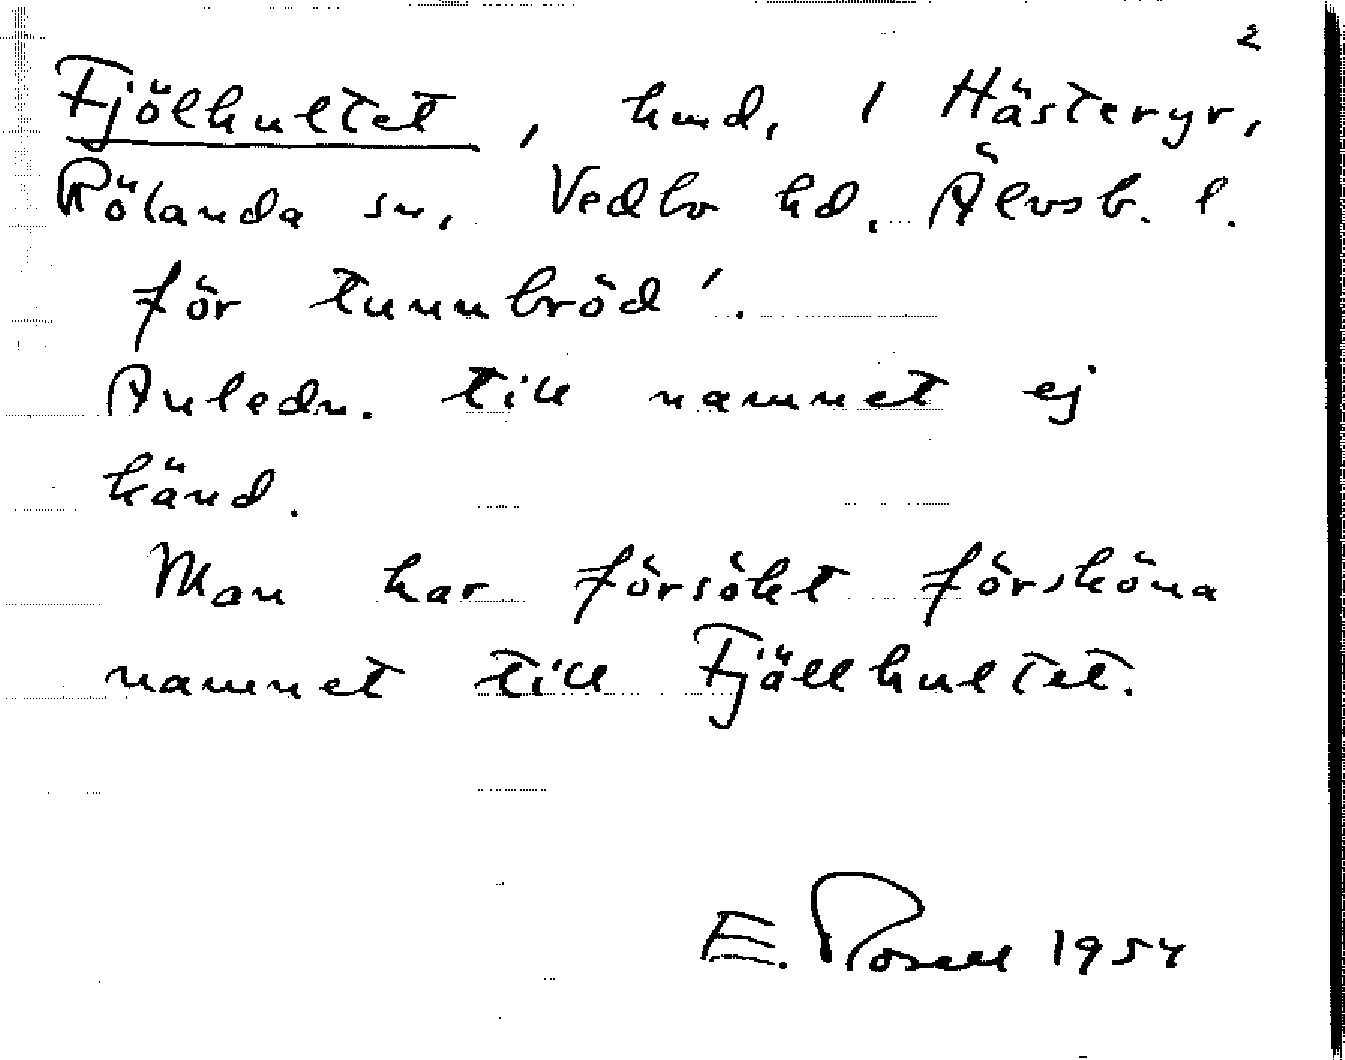 2
Fjölhultet, hmd, 1 Hästeryr,
Rölanda sn, Vedbo hd. Älvsb. l.
för tunnbröd'.
Anledn. till namnet ej
känd.
Man har försökt försköna
namnet till Fjällhultet.
E. Rosell 1954